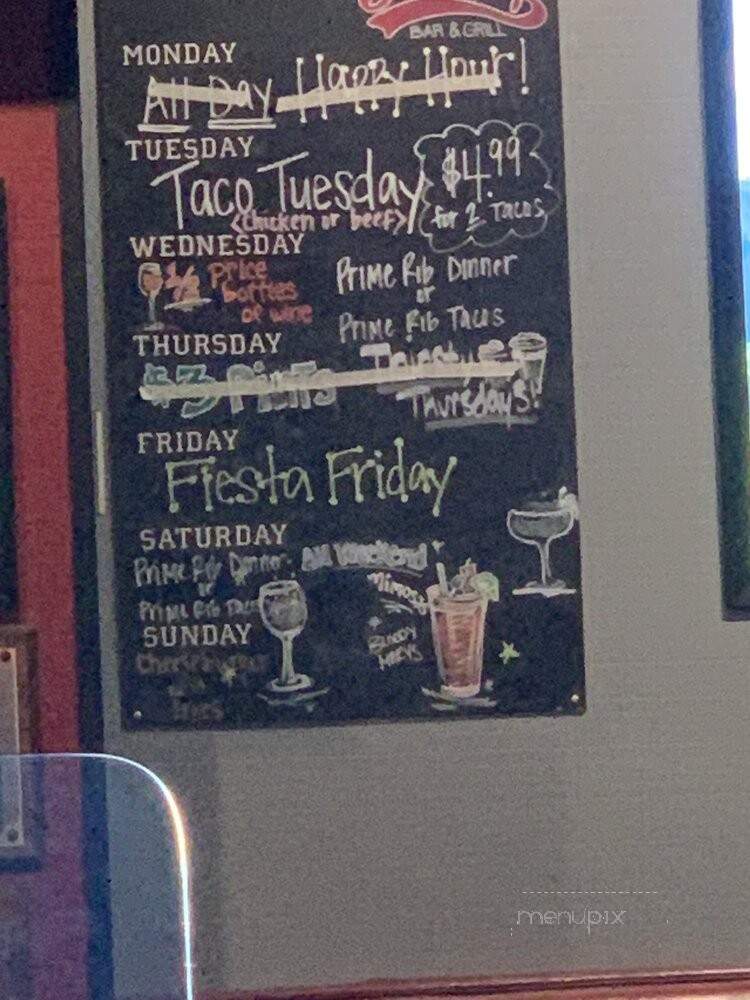 BAR & GRILL
MONDAY
All Day Happy Hour!
TUESDAY
Taco Tuesday
<Chicken or beef>
$4.99
for 2 Tacos
WEDNESDAY
1/2 Price
bottles
of wine
Prime Rib Dinner
or
Prime Rib Tacos
THURSDAY
$3 Pints
Thirsty
Thursdays!
FRIDAY
Fiesta Friday
SATURDAY
Prime Rib Dinner
or
Prime Rib Tacos
All Weekend
Mimosa
Bloody
Marys
SUNDAY
Fries
menupix